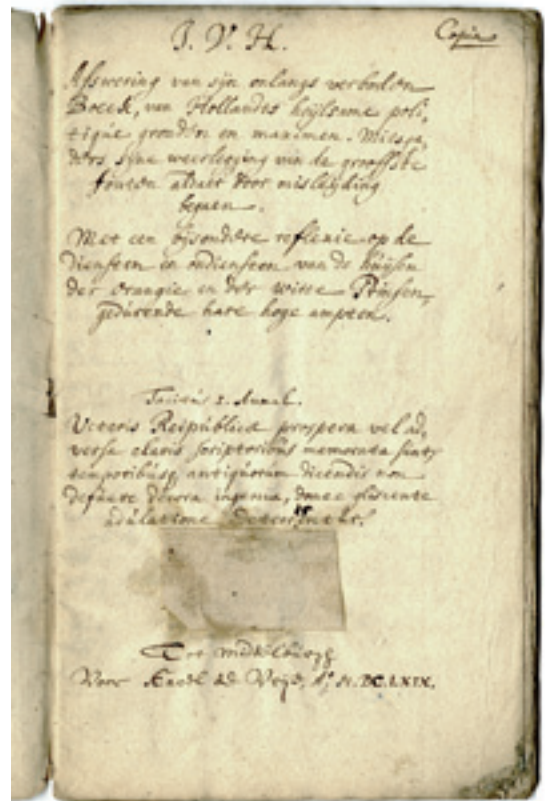 J. V. H.
Copia
Afswering van syn onlangs verboden
Boeck, van Hollandts heylsame poli,
tique gronden en maximen. Mitsga,
ders syne weerlegging van de grofste
fouten aldaer door misleyding
begaen.
Met een bysondere reflexie op de
diensten en ondiensten van de huysen
der Orangie en der Witte Prinsen,
gedurende hare hoge ampten.
Tacitus 1. Annal.
Veteris Reipublica prospera vel ad,
versa claris scriptoribus memorata sunt,
temporibusq antiquorum dicendis non
defuere decora ingenia, donec gliscente
adulatione deterrentur.
Tot Middelburgh
Voor de Vrye, Aº M.DC.LXIX.